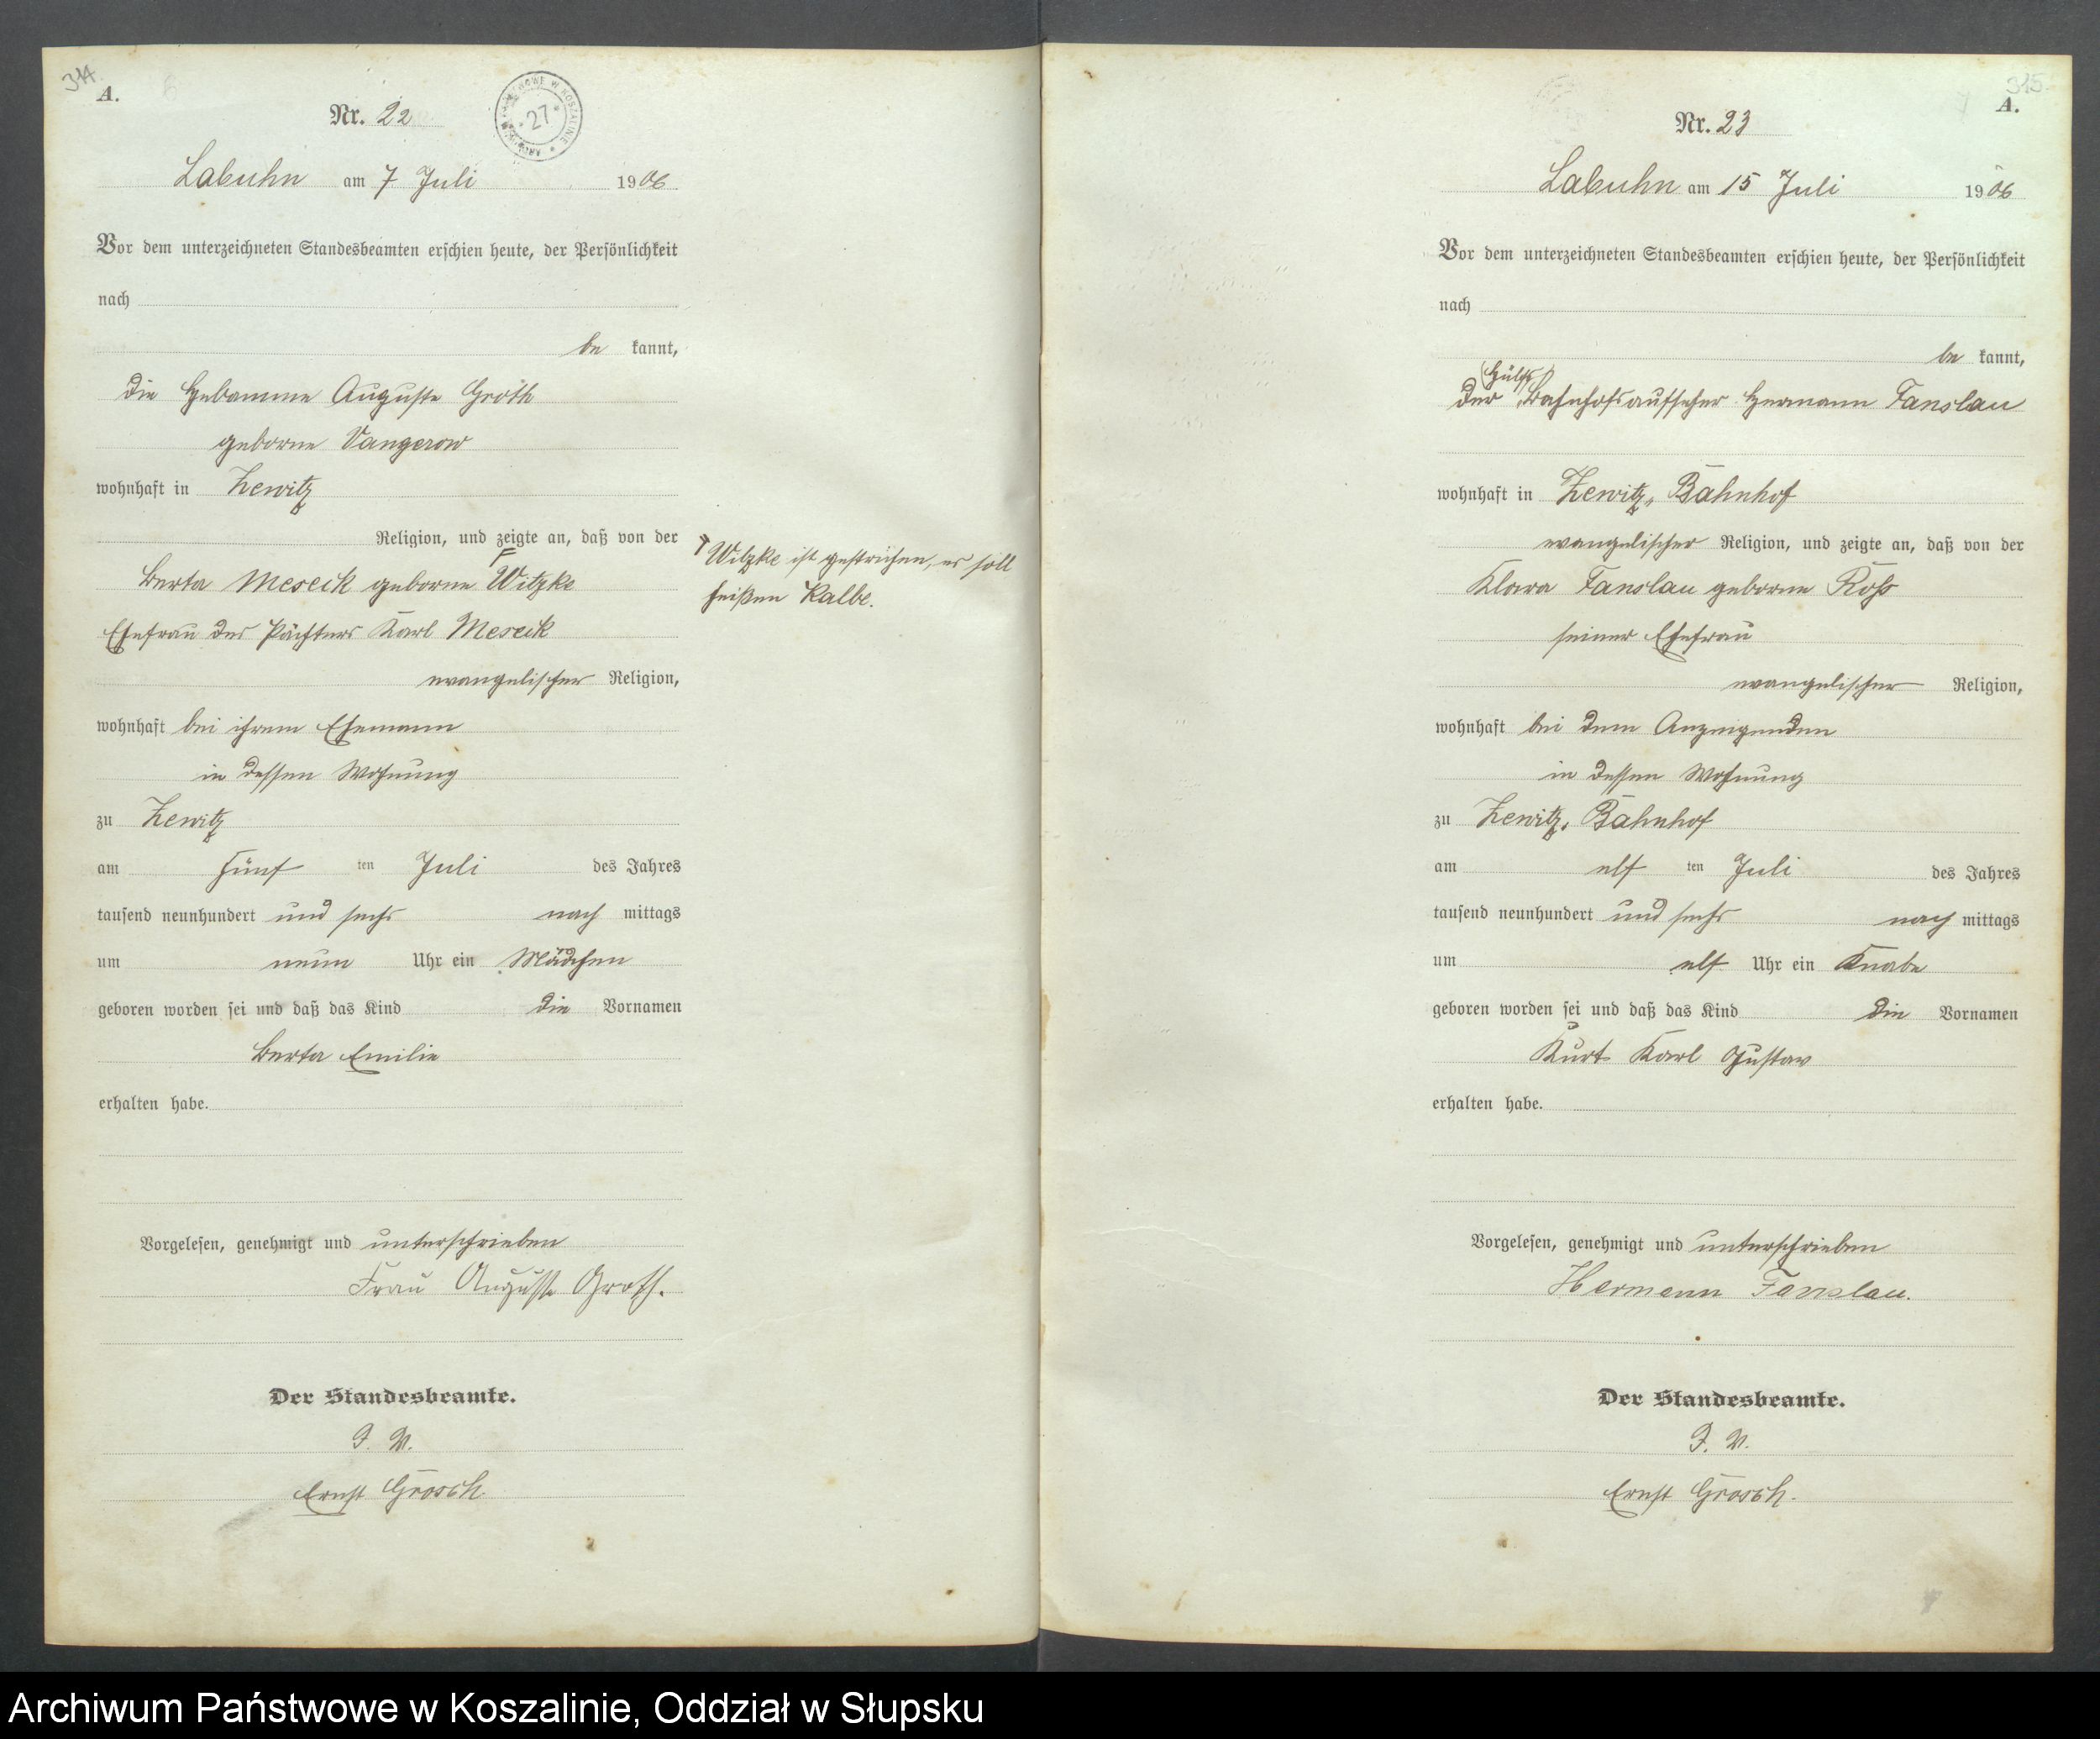 314
A.
Nr. 22
27
Labuhn am 7 Juli 1906
Vor dem unterzeichneten Standesbeamten erschien heute, der Persönlichkeit
nach
be kannt,
die Hebamme Auguste Groth
geborne Vangerow
wohnhaft in Zewitz
Religion, und zeigte an, daß von der
Berta Meseck geborne Witzke
Ehefrau des Pächters Karl Meseck
evangelischer Religion,
wohnhaft bei ihrem Ehemann
in dessen Wohnung
zu Zewitz
am fünf ten Juli des Jahres
tausend neunhundert und sechs nach mittags
um neun Uhr ein Mädchen
geboren worden sei und daß das Kind die Vornamen
Berta Emilie
erhalten habe.
Vorgelesen, genehmigt und unterschrieben
Frau Auguste Groth.
Der Standesbeamte.
J. V.
Ernst Grosch
Witzke ist gestrichen, es soll
heißen Kalbe.
315
A.
Nr. 23
Labuhn am 15 Juli 1906
Vor dem unterzeichneten Standesbeamten erschien heute, der Persönlichkeit
nach
be kannt,
(Hülfs)
der Bahnhofsaufseher Hermann Fanslau
wohnhaft in Zewitz, Bahnhof
evangelischer Religion, und zeigte an, daß von der
Klara Fanslau geborne Roß
seiner Ehefrau
evangelischer Religion,
wohnhaft bei dem Anzeigenden
in dessen Wohnung
zu Zewitz, Bahnhof
am elf ten Juli des Jahres
tausend neunhundert und sechs nach mittags
um elf Uhr ein Knabe
geboren worden sei und daß das Kind die Vornamen
Kurt Karl Gustav
erhalten habe.
Vorgelesen, genehmigt und unterschrieben
Hermann Fanslau.
Der Standesbeamte.
J. V.
Ernst Grosch.
Archiwum Państwowe w Koszalinie, Oddział w Słupsku